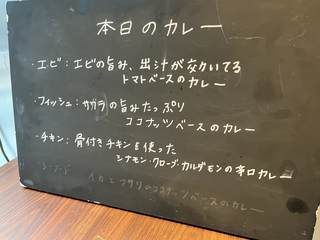 本日のカレー
・エビ：エビの旨み、出汁が効いてる
トマトベースのカレー
・フィッシュ：サワラの旨みたっぷり
ココナッツベースのカレー
・チキン：骨付きチキンを使った
シナモン・クローブ・カルダモンの辛口カレー
イカとアサリのココナッツベースのカレー